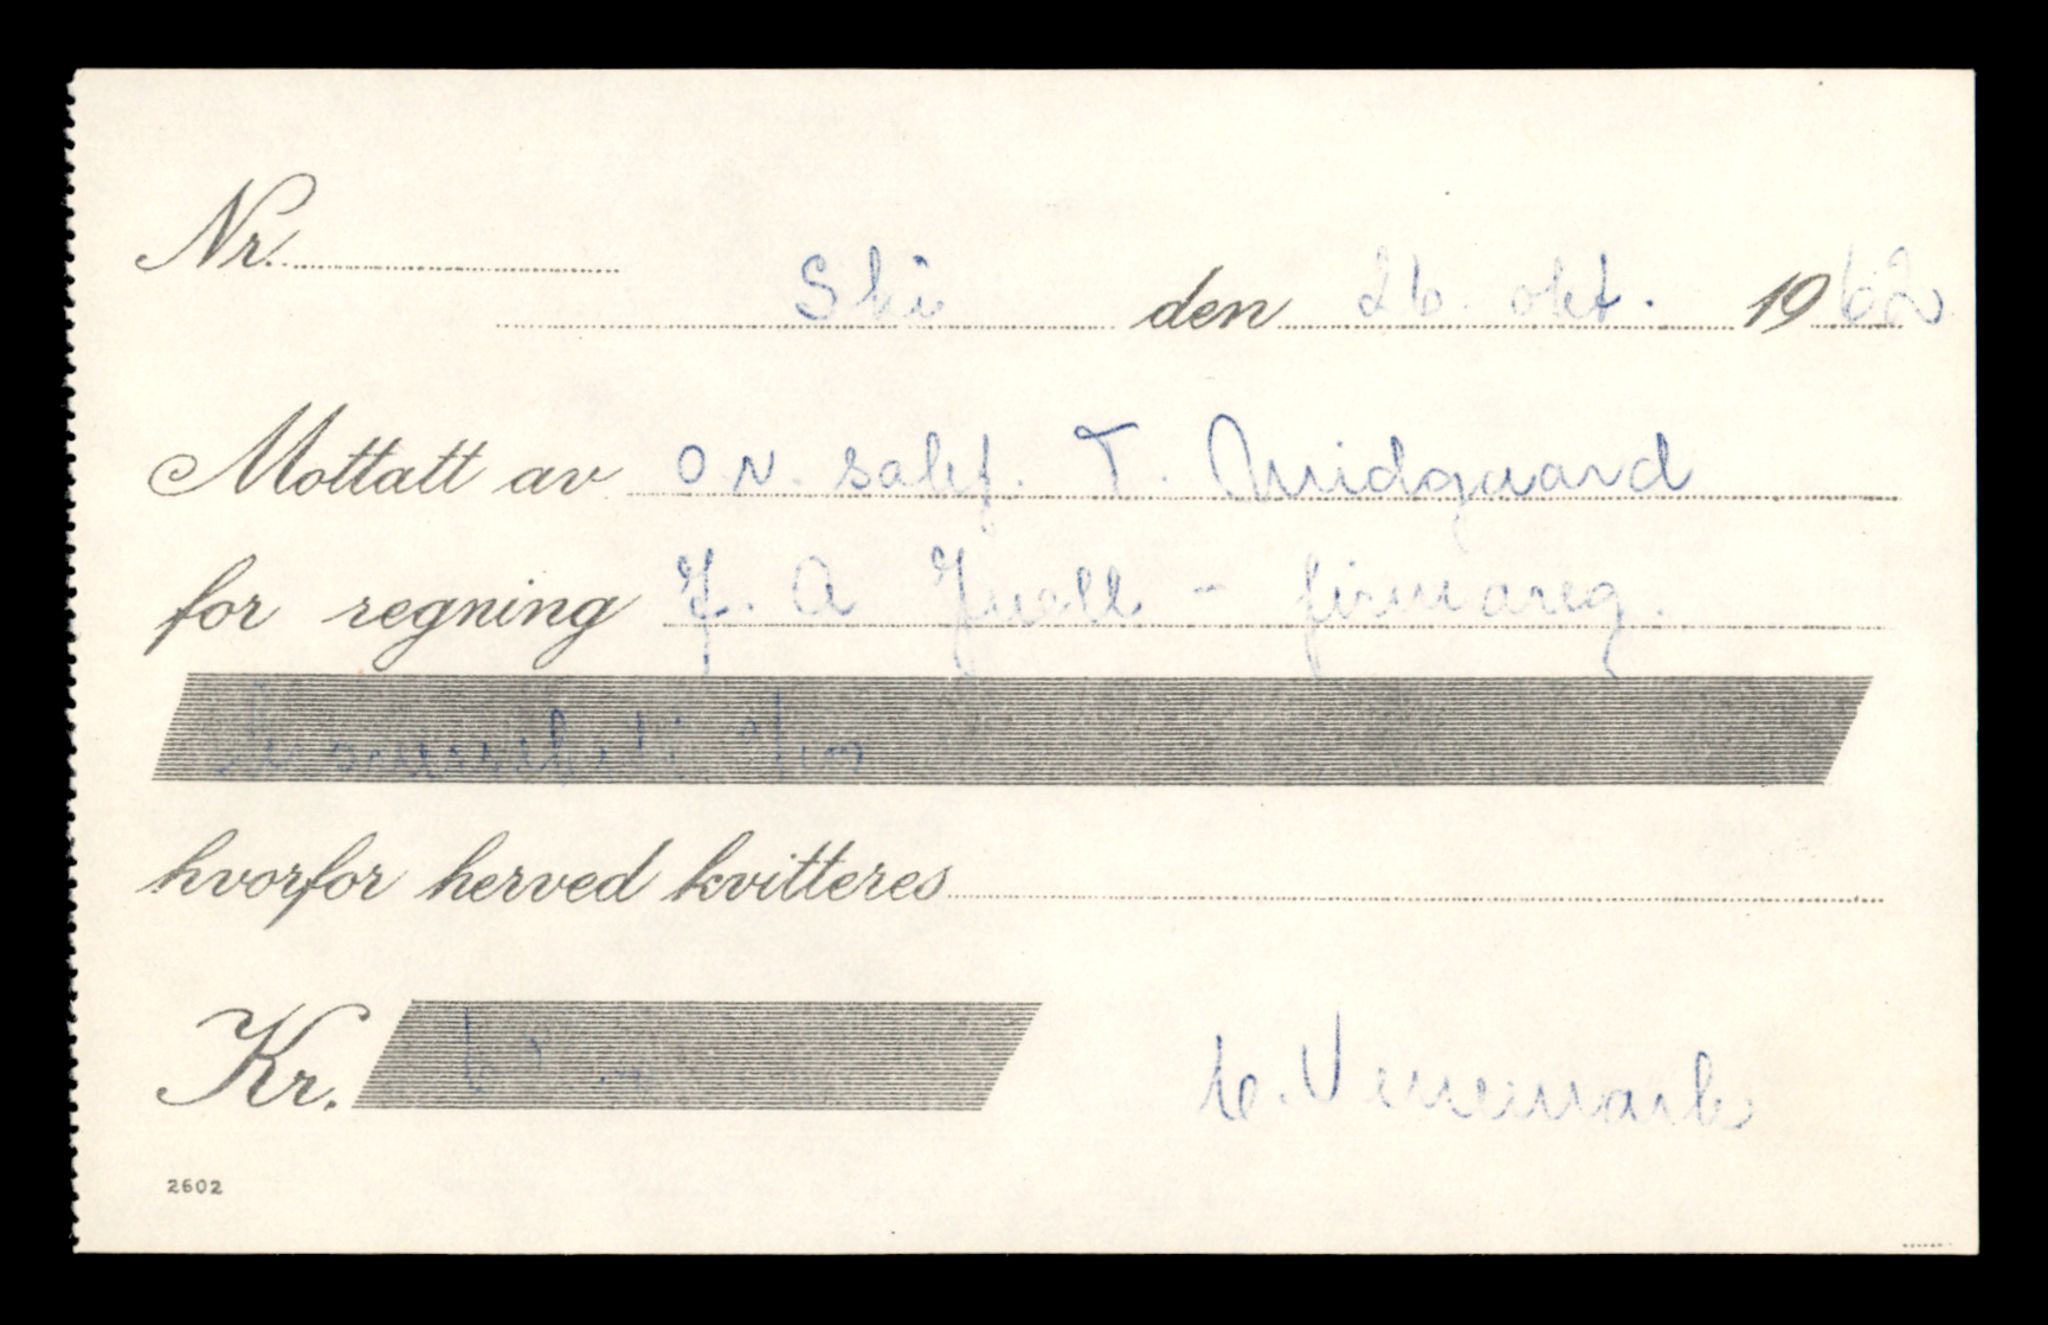 Nr.
Ski den 26. okt. 1962
Mottatt av o.r. sakf. T. Midgaard
for regning J. A Juell - firmareg.
hvorfor herved kvitteres
Kr.
2602